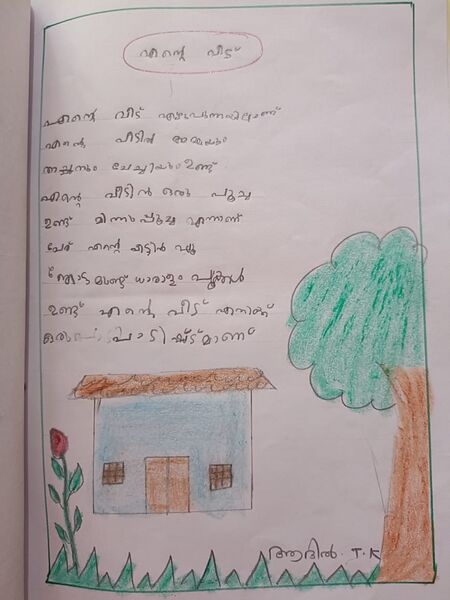 എന്റെ വീട്
എന്റെ വീട് ഏഴുപുന്നയിലാണ്
എന്റെ വീടിൽ അമ്മയും
അച്ഛനും ചേച്ചിയും ഉണ്ട്
എന്റെ വീടിൻ ഒരു പൂച്ച
ഉണ്ട് മിന്നുപ്പൂച്ച എന്നാണ്
പേര് എന്റെ വീട്ടിൻ പൂ
ന്തോട്ടമുണ്ട് ധാരാളം പൂക്കൾ
ഉണ്ട് എന്റെ വീട് എനിക്ക്
ഒരു പാടിഷ്ട്മാണ്
ആദിൽ. T. K